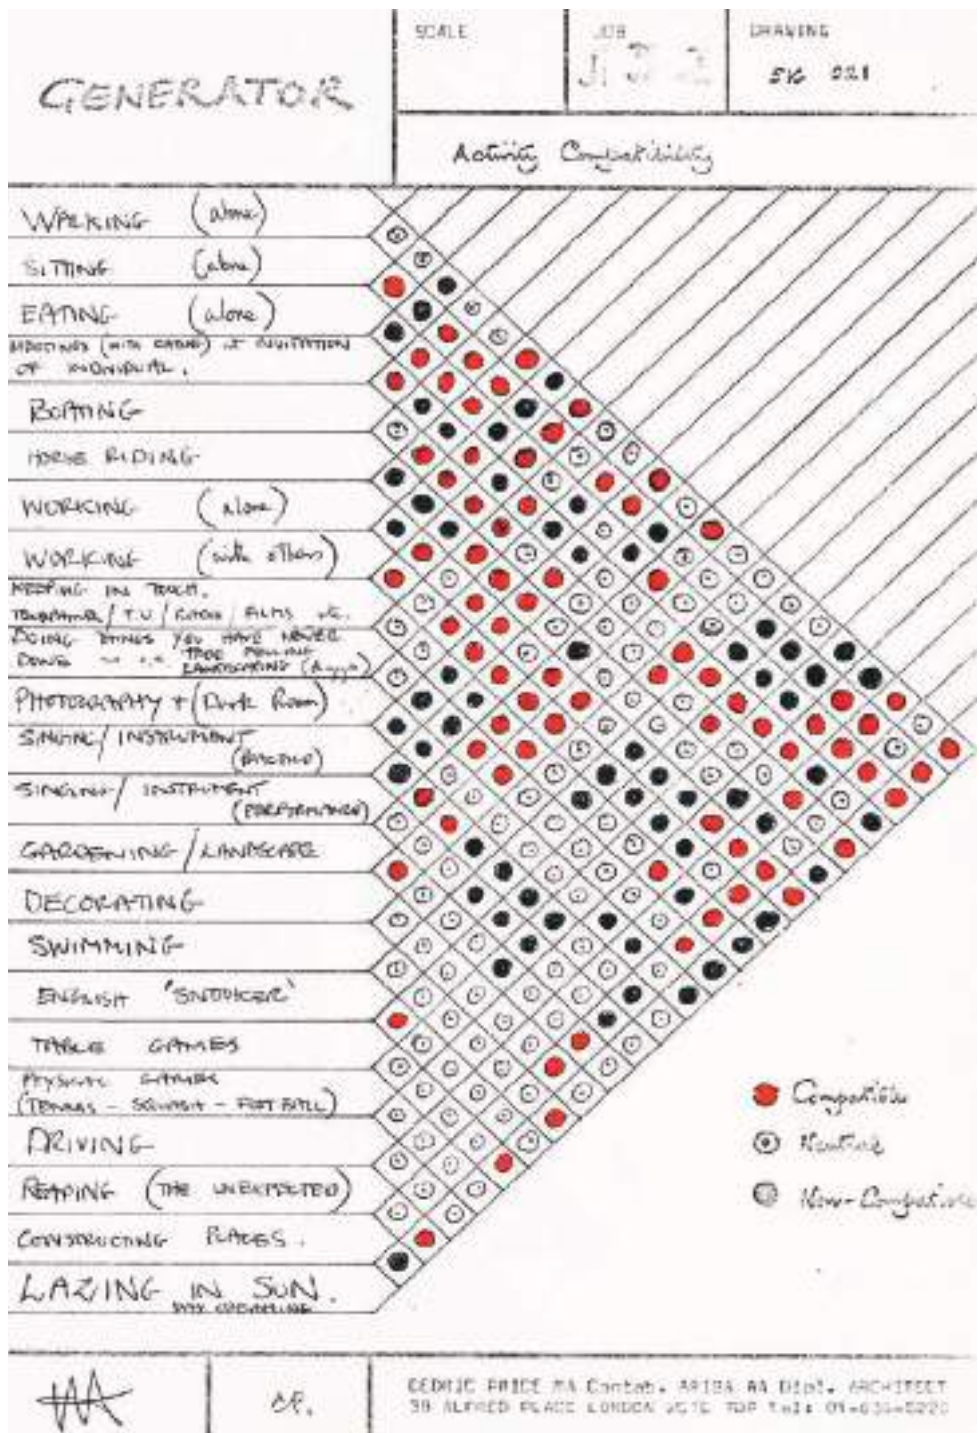 SCALE
JOB
DRAWING
GENERATOR
SK 021
Activity Compatibility
WALKING (alone)
SITTING (alone)
EATING (alone)
MEETINGS (WITH EATING) AT INVITATION
OF INDIVIDUAL.
BOATING
HORSE RIDING
WORKING (alone)
WORKING (with others)
KEEPING IN TOUCH.
TELEPHONE / T.V / RADIO / FILMS etc.
DOING THINGS YOU HAVE NEVER
DONE TREE FELLING
LANDSCAPING
PHOTOGRAPHY + (Dark Room)
SINGING / INSTRUMENT
(PRACTICE)
SINGING / INSTRUMENT
(PERFORMANCE)
GARDENING / LANDSCAPE
DECORATING
SWIMMING
ENGLISH 'SNOOKER'
TABLE GAMES
PHYSICAL GAMES
(TENNIS - SQUASH - FOOTBALL)
DRIVING
REAPING (THE UNEXPECTED)
CONSTRUCTING PLACES.
LAZING IN SUN.
DAY DREAMING
Compatible
Neutral
Non-Compatible
CP.
CEDRIC PRICE MA Cantab. ARIBA AA Dipl. ARCHITECT
38 ALFRED PLACE LONDON WC1E 7DP Tel: 01-636-5220